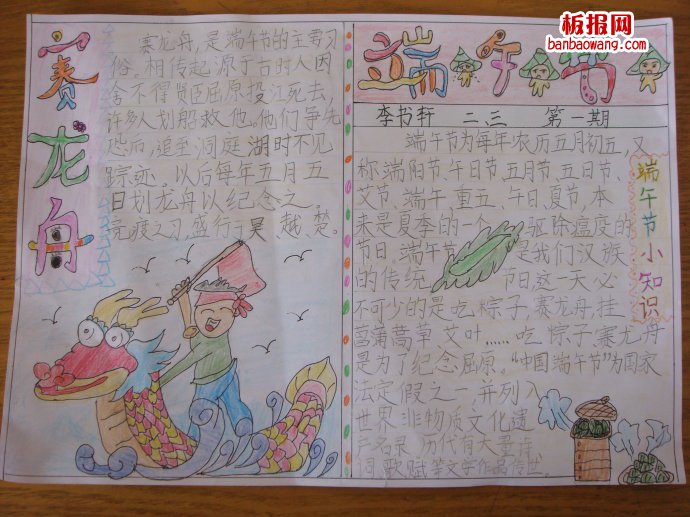 赛龙舟
赛龙舟，是端午节的主要习
俗。相传起源于古时人因
舍不得贤臣屈原投江死去，
许多人划船救他，他们争先
恐后，追至洞庭湖时不见
踪迹。以后每年五月五
日划龙舟以纪念之。
竞渡之习，盛行于吴、越、楚。
板报网
banbaowang.com
端午节
李书轩 二、三 第一期
端午节小知识
端午节为每年农历五月初五，又
称端阳节、午日节、五月节、五日节、
艾节、端午、重五、午日、夏节，本
来是夏季的一个 驱除瘟疫的
节日，端午节 是我们汉族
的传统 节日，这一天必
不可少的是吃粽子，赛龙舟，挂
菖蒲蒿草艾叶……吃粽子赛龙舟
是为了纪念屈原。“中国端午节”为国家
法定假之一并列入
世界非物质文化遗
产名录 历代有大量诗
词歌赋等文学作品传世。